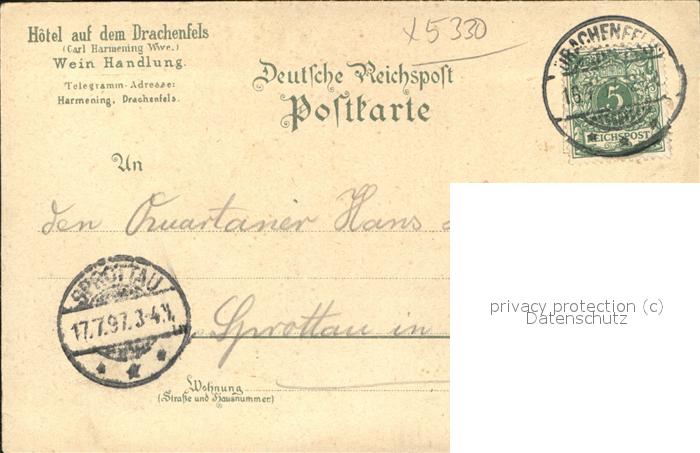 Hôtel auf dem Drachenfels
(Carl Harmening Wwe.)
Wein Handlung.
Telegramm-Adresse:
Harmening, Drachenfels.
x5330
Deutsche Reichspost
Postkarte
DRACHENFELS
5
REICHSPOST
An
den Quartaner Hans
SPROTTAU
17.7.97. 3-4N.
Sprottau in
Wohnung
(Straße und Hausnummer)
privacy protection (c)
Datenschutz